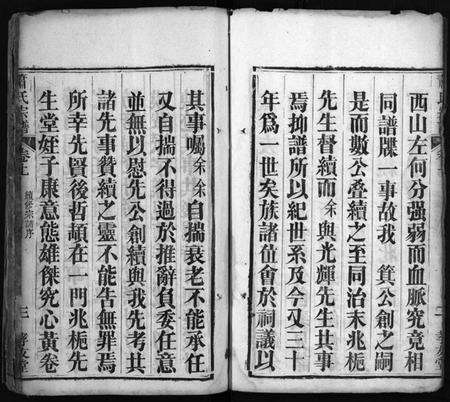 西山左何分強弱而血脈究竟相
同譜牒一事故我 箕公創之嗣
是而數公叠續之至同治末兆梔
先生督續而余與光輝先生其事
焉抑譜所以紀世系及今又三十
年爲一世矣族諸位會於祠議以
其事囑余余自揣衰老不能承任
又自揣不得過於推辭負委任意
並無以慰先公創續與我先考其
諸先事贊續之靈不能告無罪焉
所幸先賢後哲頡在一門兆梔先
生堂姪子康意態雄傑究心黃卷
蕭氏宗譜
三
孝友堂